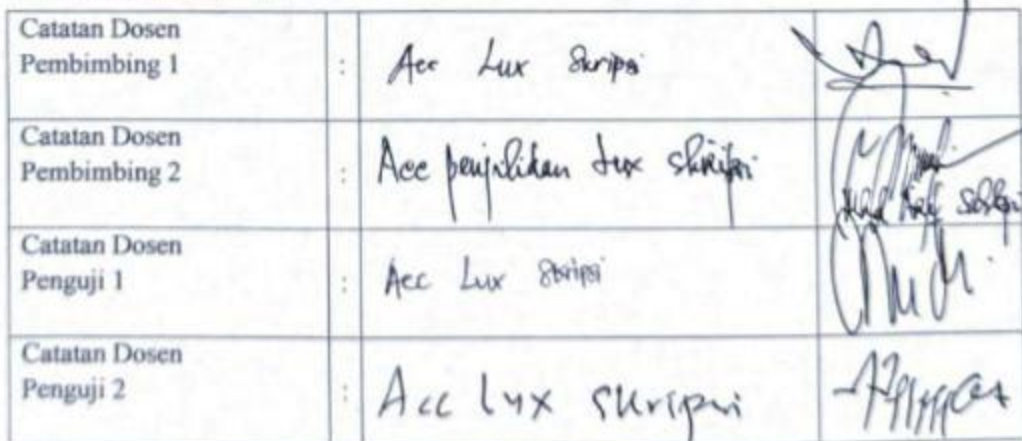 Catatan Dosen
Pembimbing 1 : Acc Lux Skripsi
Catatan Dosen
Pembimbing 2 : Acc penjilidan Lux skripsi
Catatan Dosen
Penguji 1 : Acc Lux Skripsi
Catatan Dosen
Penguji 2 : Acc lux skripsi